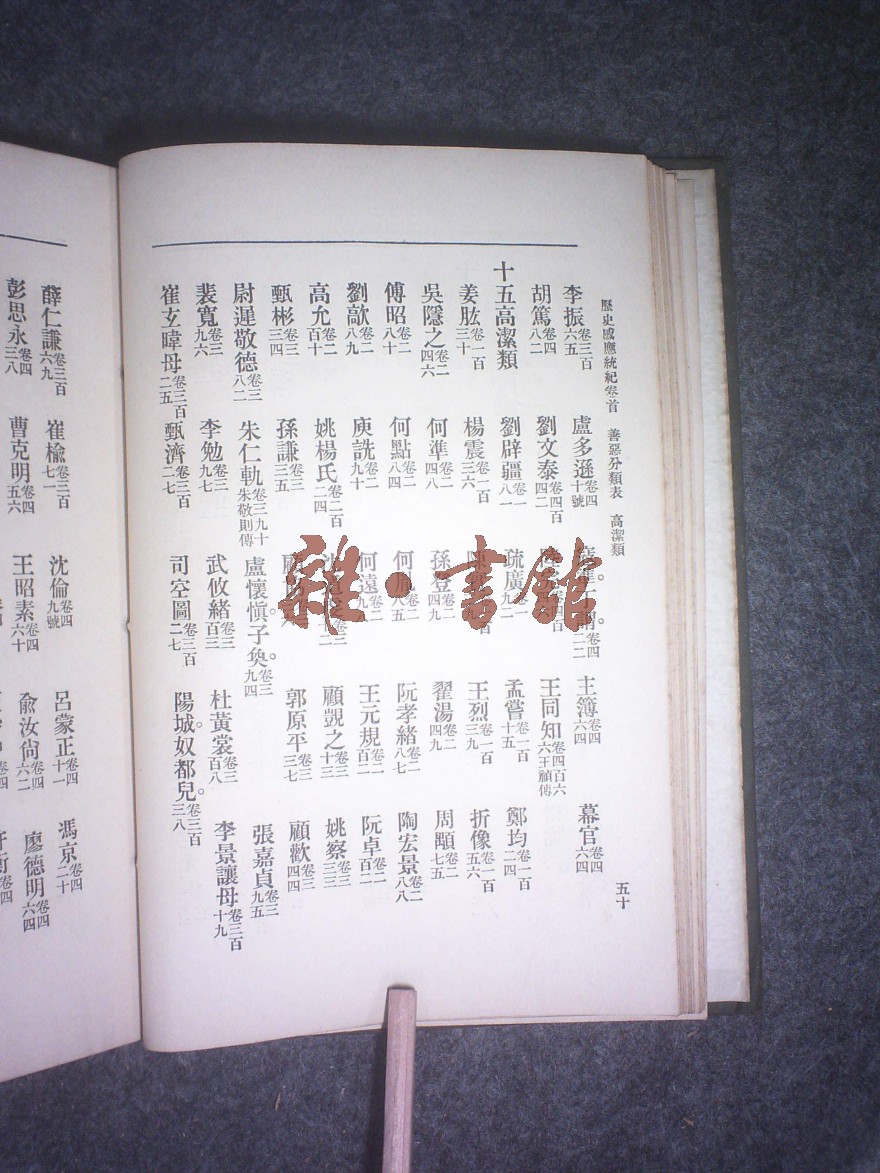 歷史感應統紀卷首 善惡分類表 高潔類 五十
李振卷三百六五 盧多遜卷四十號 卷四二二 主簿卷四六四 幕官卷四六四
胡篤卷四八二 劉文泰卷四百四二 王同知卷四百六六王禎傳
十五高潔類
劉辟疆卷一八一 疏廣卷一九二 孟嘗卷一百十五 鄭均卷一百二四
姜肱卷一百三十 楊震卷一百三六 王烈卷一百三九 折像卷一百五六
吳隱之卷二四六 何準卷二四八 孫登卷二四九 翟湯卷二四九 周顒卷二七五
傅昭卷二八十 何點卷二八四 何胤卷二八五 阮孝緒卷二八七 陶宏景卷二八八
劉歊卷二八九 庾詵卷二九十 何遠卷二九二 王元規卷二百二 阮卓卷二百二
高允卷二百十 姚楊氏卷二百二四 顧覬之卷三十三 姚察卷三三三
甄彬卷三三四 孫謙卷三三五 郭原平卷三三七 顧歡卷三四四
尉遲敬德卷三八二 朱仁軌卷三九十朱敬則傳 盧懷愼。子奐。卷三九四 張嘉貞卷三九五
裴寬卷三九六 李勉卷三九七 武攸緒卷三百三 杜黃裳卷三百八 李景讓母卷三百十九
崔玄暐母卷三百二五 甄濟卷三百二七 司空圖卷三百二七 陽城。奴都兒。卷三百三八
薛仁謙卷三百六九 崔楡卷三百七一 沈倫卷四九號 呂蒙正卷四十一 馮京卷四二十
彭思永卷四三八 曹克明卷四五六 王昭素卷四六十 俞汝尙卷四六二 廖德明卷四六四